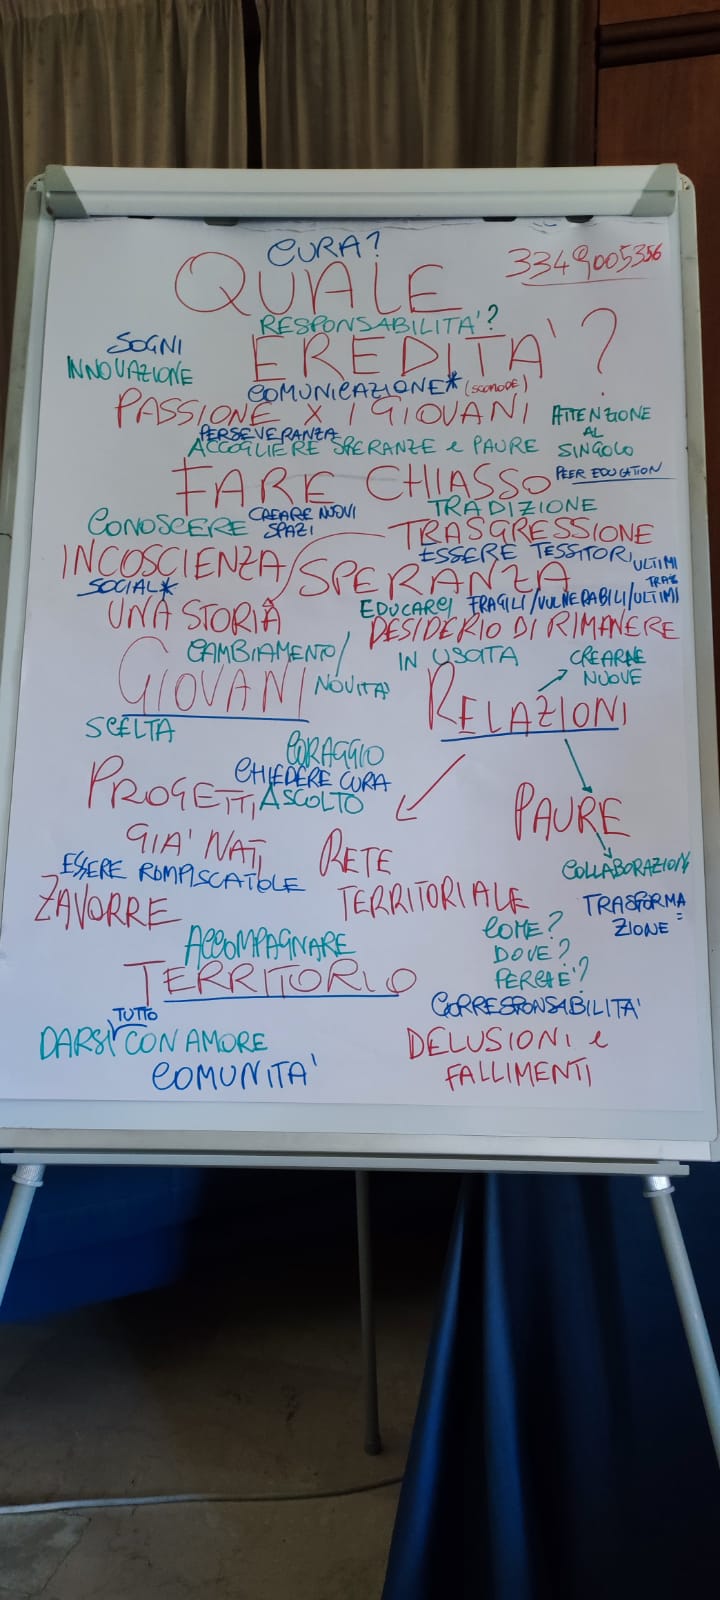 CURA?
QUALE
3349005356
RESPONSABILITA'?
SOGNI
EREDITA'?
INNOVAZIONE
COMUNICAZIONE* (SCOMODE)
PASSIONE X I GIOVANI
ATTENZIONE
AL
SINGOLO
PERSEVERANZA
ACCOGLIERE SPERANZE e PAURE
PEER EDUCATION
FARE CHIASSO
TRADIZIONE
CONOSCERE
CREARE NUOVI
SPAZI
TRASGRESSIONE
INCOSCIENZA
ESSERE TESSITORI
ULTIMI
SPERANZA
SOCIAL*
EDUCARCI
FRAGILI/VULNERABILI/ULTIMI
UNA STORIA
DESIDERIO DI RIMANERE
CAMBIAMENTO/
NOVITA'
IN USCITA
CREARNE
NUOVE
GIOVANI
RELAZIONI
SCELTA
CORAGGIO
CHIEDERE CURA
PROGETTI
ASCOLTO
GIA' NATI
PAURE
ESSERE ROMPISCATOLE
RETE
TERRITORIALE
COLLABORAZIONI
ZAVORRE
TRASFORMA=
ZIONE
COME?
DOVE?
PERCHE'?
ACCOMPAGNARE
TERRITORIO
CORRESPONSABILITA'
TUTTO
DARSI CON AMORE
COMUNITA'
DELUSIONI e
FALLIMENTI